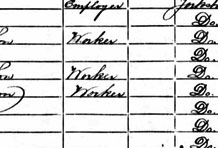 Employer
Do.
Worker Do.
Do.
Worker Do.
Worker Do.
Do.
Do.
Do.